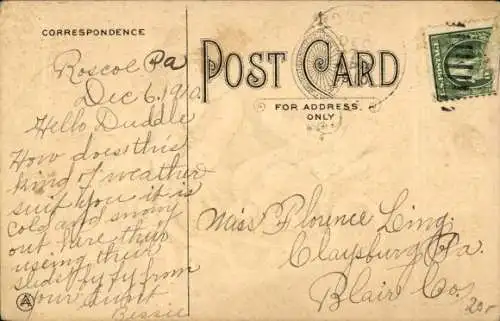 CORRESPONDENCE
POST CARD
FOR ADDRESS
ONLY
Roscoe Pa
Dec 6, 1910.
Hello Duddle
How does this
kind of weather
suit you it is
cold and snowy
out here they
using their
sleds by by from
your Aunt
Bessie
Miss Florence Ling.
Claysburg Pa.
Blair Co.
20,-